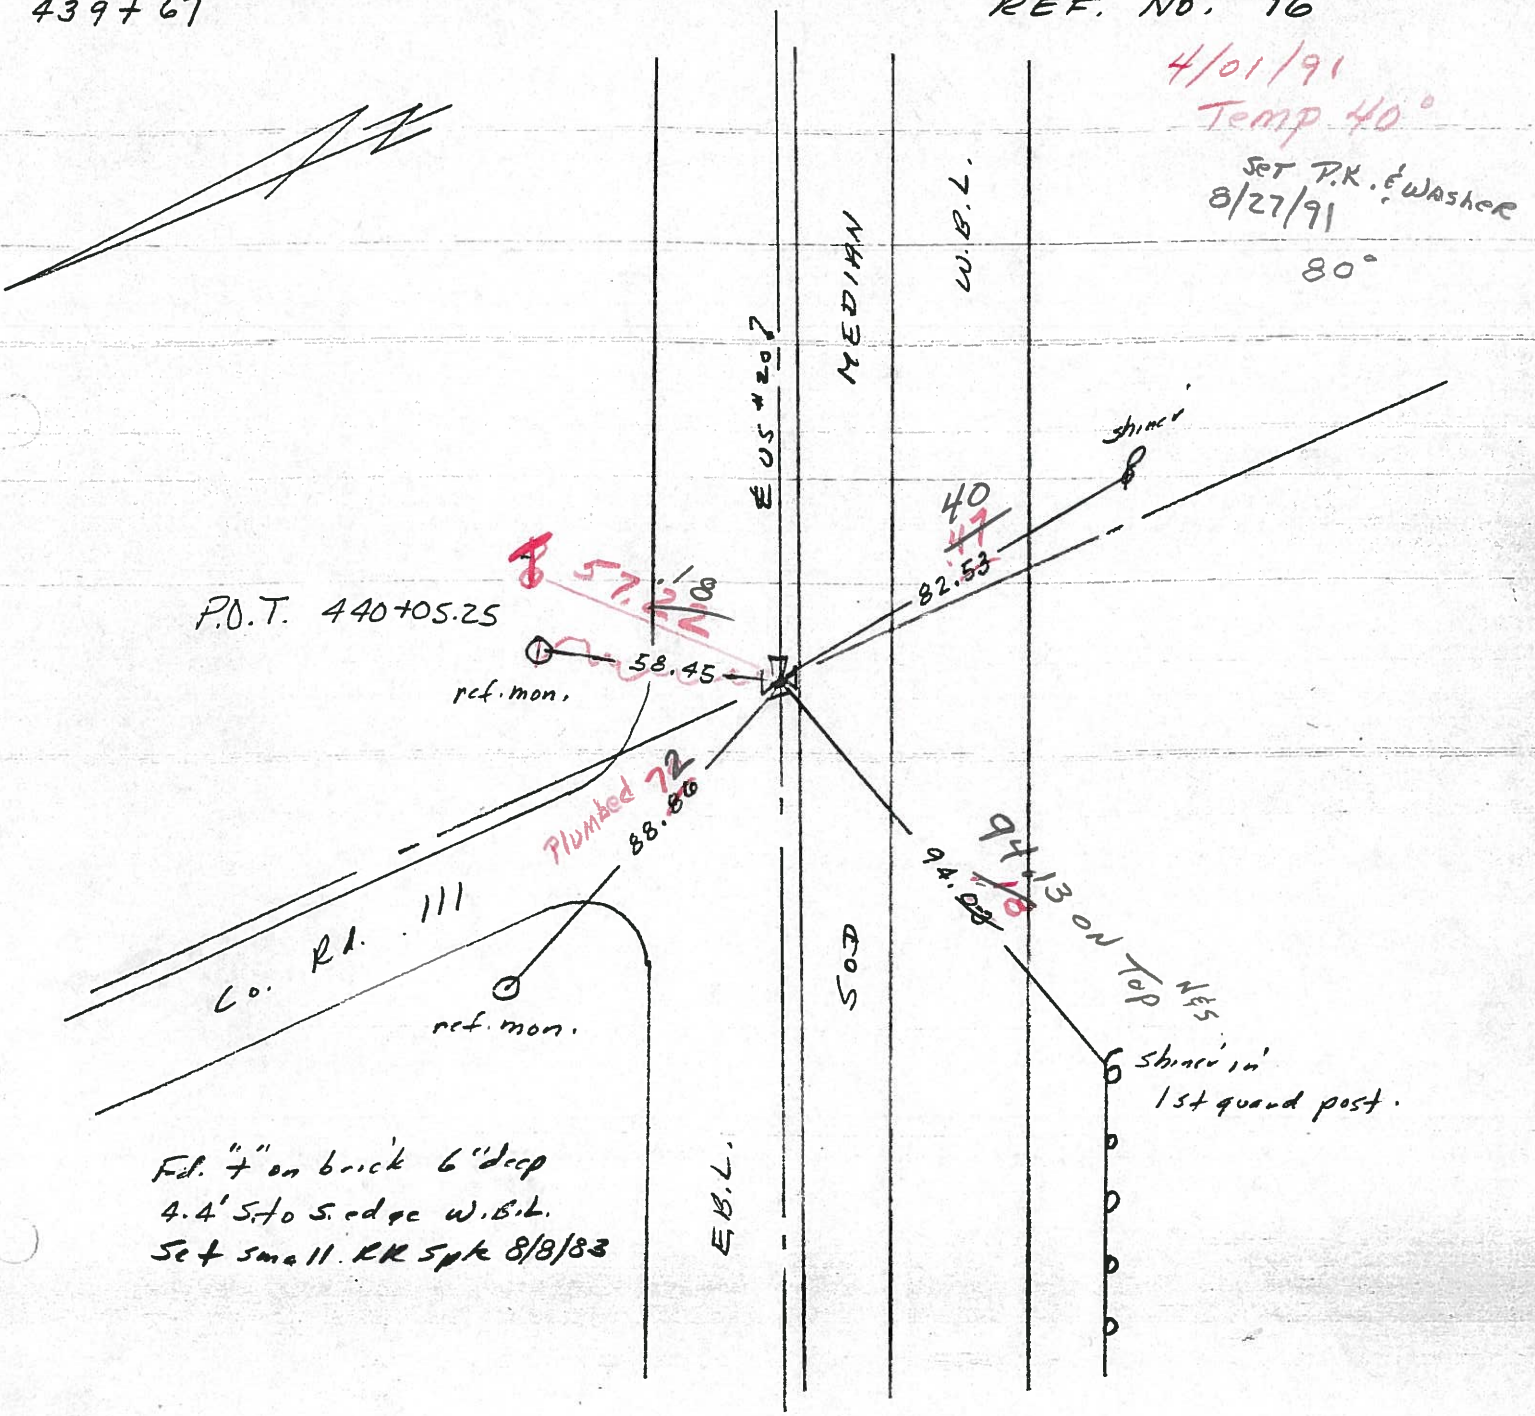 439+67
REF. NO. 76
4/01/91
Temp 40°
Set P.K. & Washer
8/27/91
80°
W.B.L.
MEDIAN
℄ US #20
shiner
40
47
82.53
57.22
.18
P.O.T. 440+05.25
58.45
ref. mon.
Plumbed 72
88.86
Co. Rd. 111
ref. mon.
94.13 ON Top N&S
10
94.
SOD
shiner in
1st guard post.
E.B.L.
Fd. "+" on brick 6" deep
4.4' S. to S. edge W.B.L.
Set small RR Spk 8/8/83